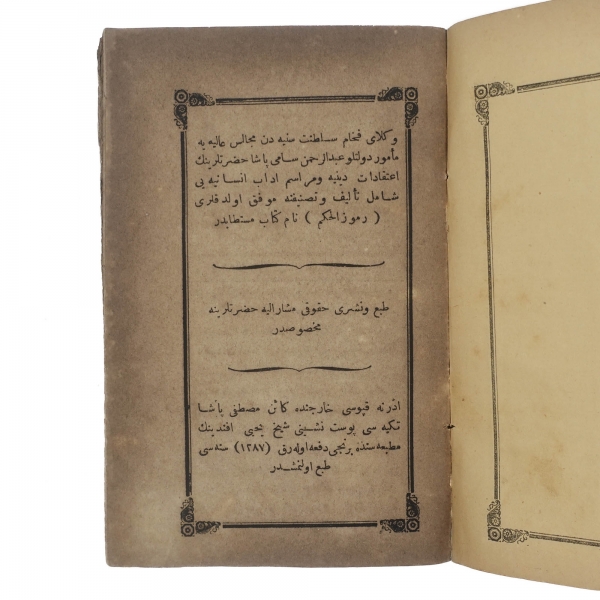 وكلای فخام سلطنت سنیه دن مجالس عالیه یه
مأمور دولتلو عبدالرحمن سامی پاشا حضرتلرینك
اعتقادات دینیه و مراسم اداب انسانیه یی
شامل تألیف و تصنیفنه موفق اولدقلری
( رموز الحكم ) نام كتاب مستطابدر
طبع ونشری حقوقی مشارالیه حضرتلرینه
مخصوصدر
ادرنه قپوسی خارجنده كائن مصطفی پاشا
تكیه سی پوست نشینی شیخ یحیی افندینك
مطبعه سنده برنجی دفعه اوله رق (١٢٨٧) سنه سی
طبع اولنمشدر